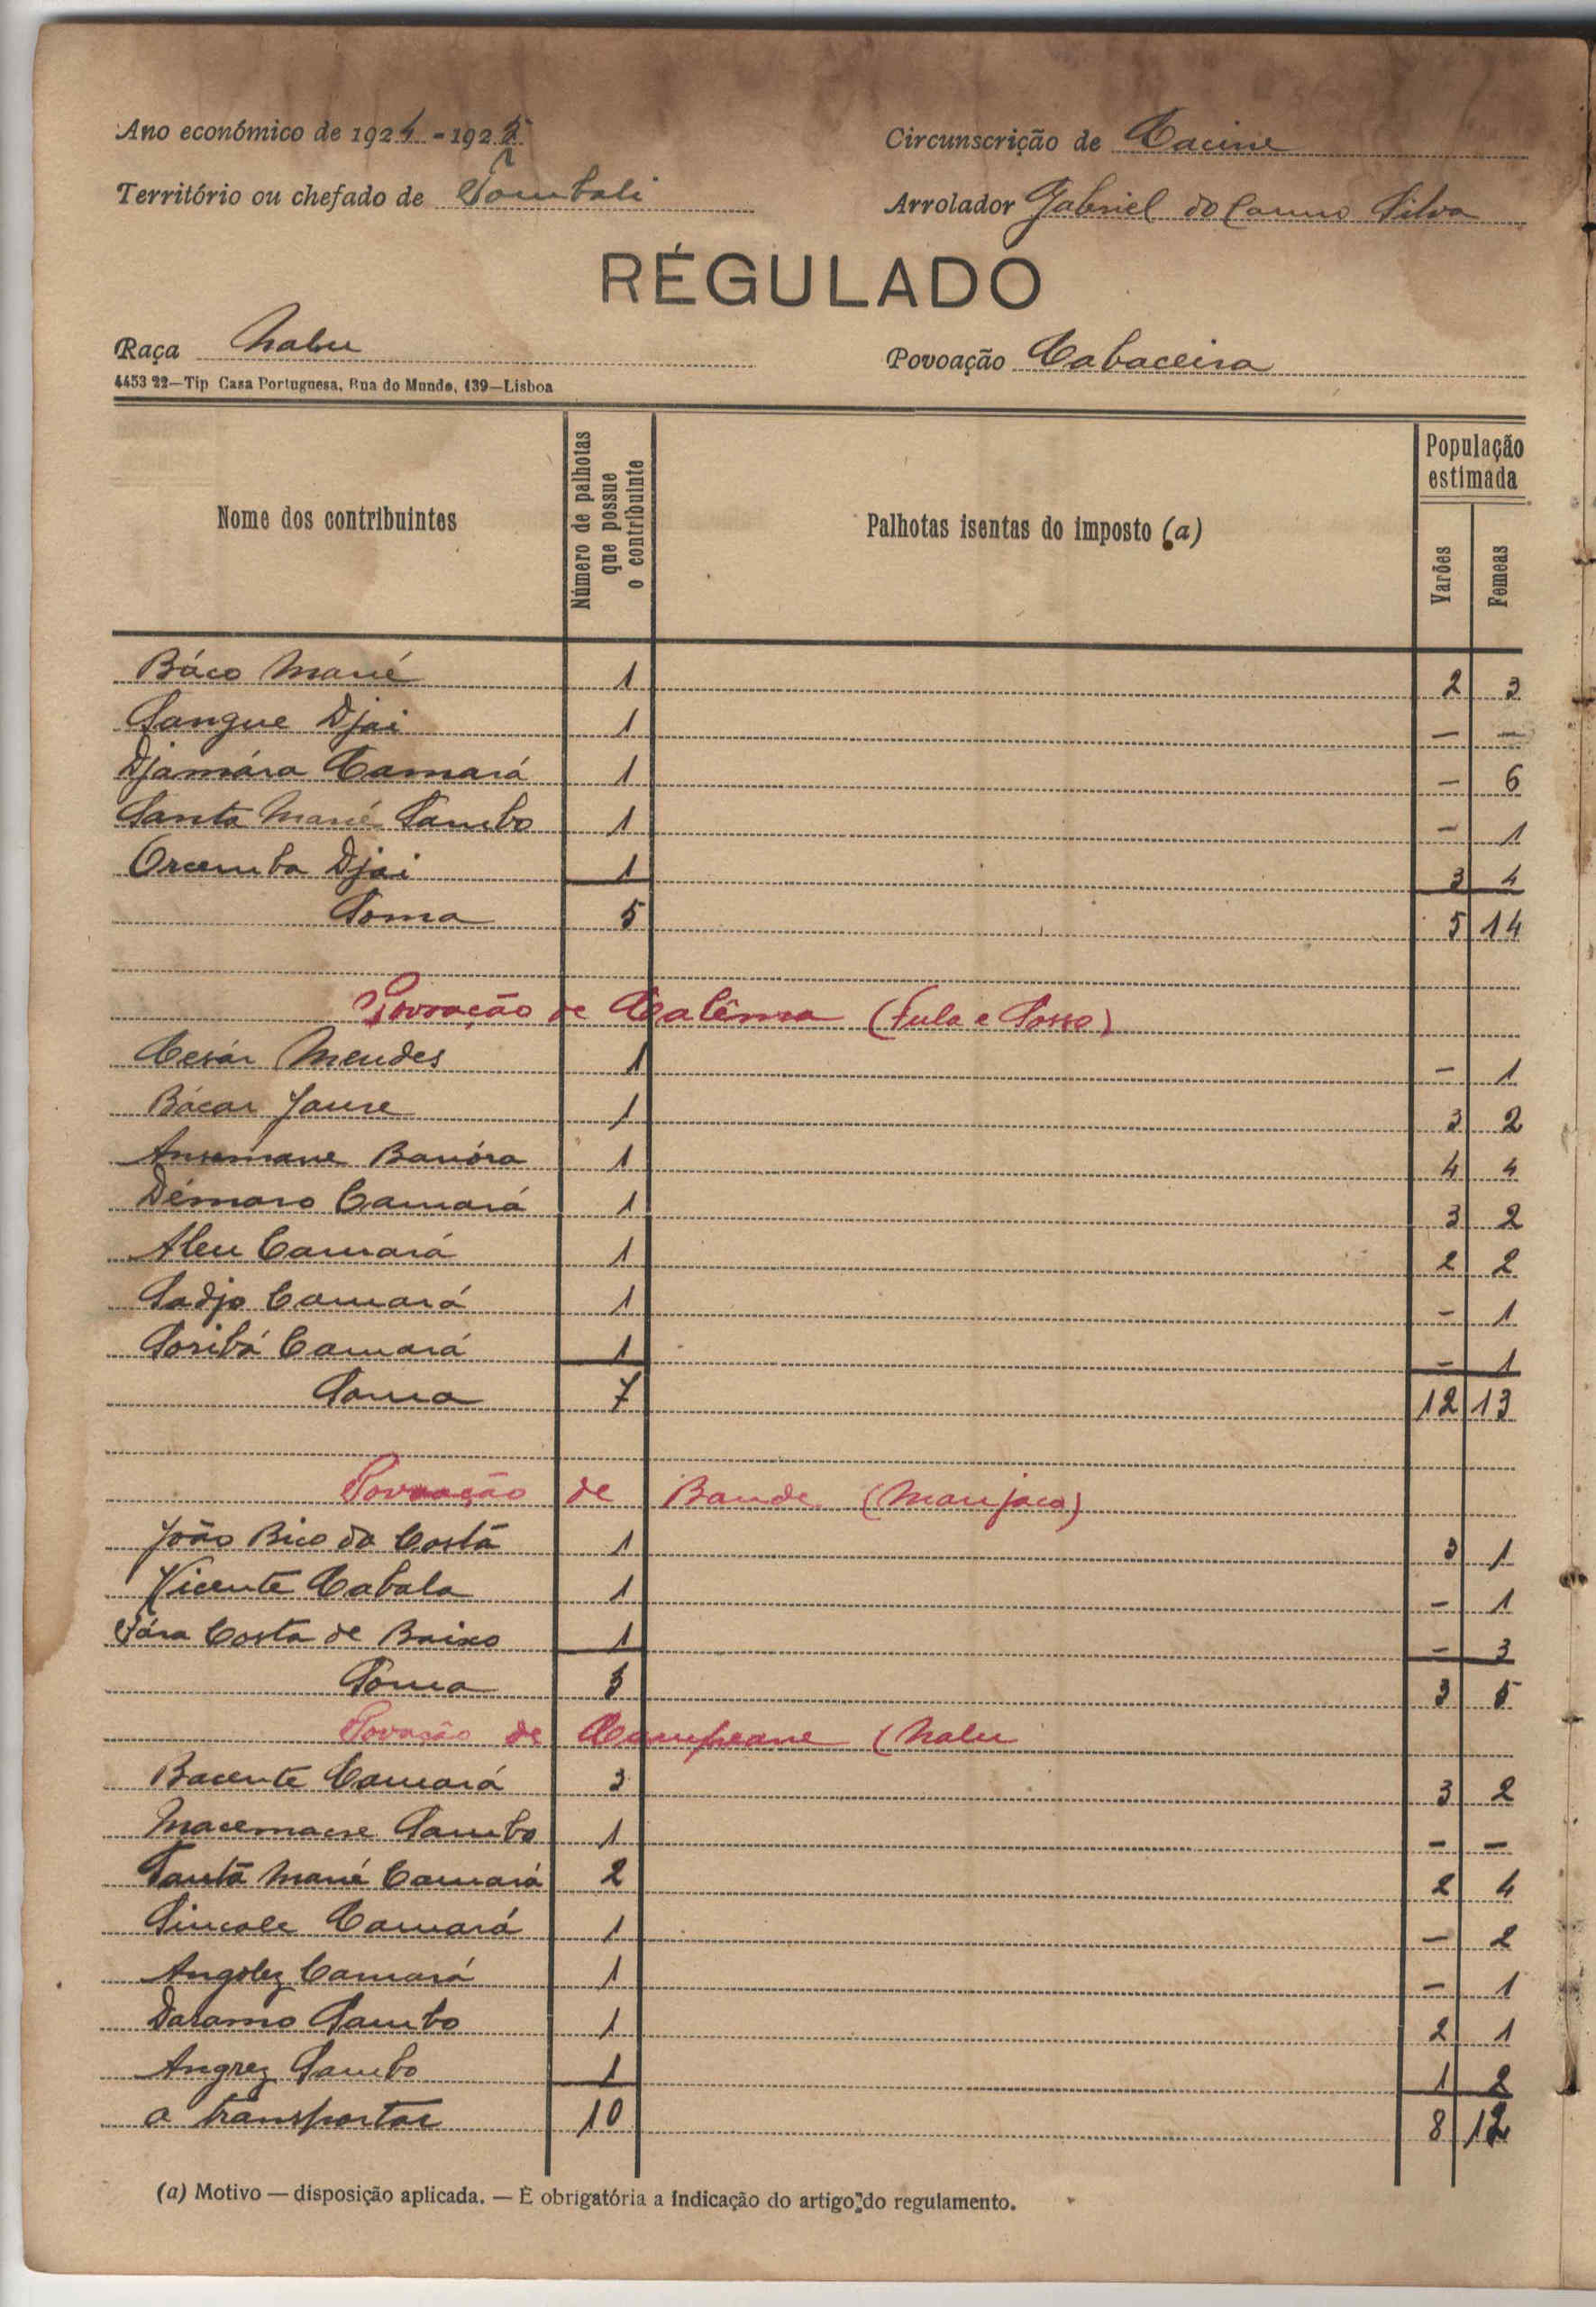 Ano económico de 1924-1925
Circunscrição de Cacine
Território ou chefado de Tombali
Arrolador Gabriel do Carmo Silva
RÉGULADO
Raça Nalu
Povoação Cabaceira
4453 22—Tip Casa Portuguesa, Rua do Mundo, 139—Lisboa
Nome dos contribuintes
Número de palhotas que possue o contribuinte
Palhotas isentas do imposto (a)
População estimada
Varões
Femeas
Báco Mané 1 2 3
Sangue Djai 1 — —
Djamára Camará 1 — 6
Santa Mané Sambo 1 — 1
Orcemba Djai 1 3 4
Soma 5 5 14
Povoação de Calêma (Fula e Sosso)
Cesár Mendes 1 — 1
Bácar Jaure 1 3 2
Ansumane Banóra 1 4 4
Démoro Camará 1 3 2
Aleu Camará 1 2 2
Sadjo Camará 1 — 1
Soribá Camará 1 — 1
Soma 7 12 13
Povoação de Bande (Manjaco)
João Bico da Costa 1 3 1
Vicente Cabala 1 — 1
Costa de Baixo 1 — 3
Soma 3 3 5
Povoação de Campeane (Nalu
Bacente Camará 3 3 2
Sambo 1 — —
Santa Mané Camará 2 2 4
Sincale Camará 1 — 2
Angolez Camará 1 — 1
Daramo Sambo 1 2 1
Angrez Sambo 1 1 2
a transportar 10 8 12
(a) Motivo — disposição aplicada. — É obrigatória a indicação do artigo do regulamento.